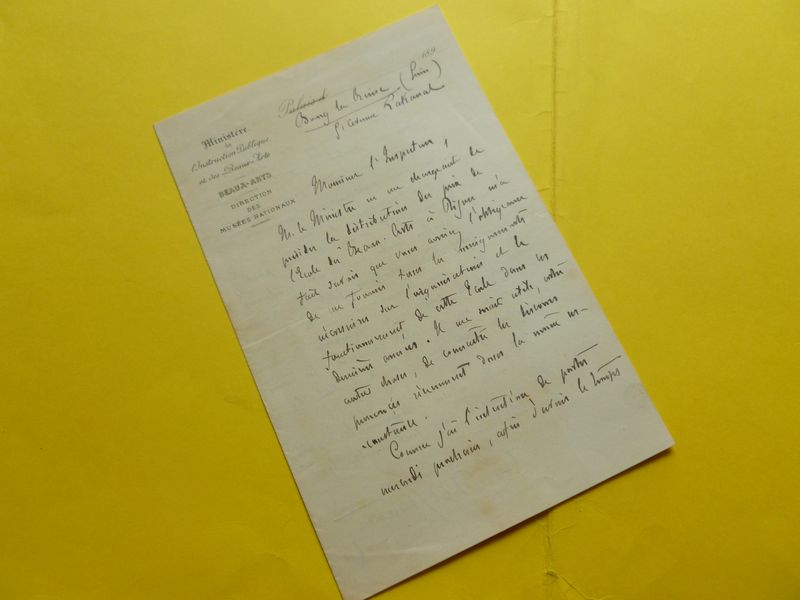 189
Ministère
de
l'Instruction Publique
et des Beaux-Arts
BEAUX-ARTS
DIRECTION
DES
MUSÉES NATIONAUX
Bourg la Reine (Seine)
Monsieur l'Inspecteur,
M. le Ministre en me chargeant de
présider la distribution des prix de
l'Ecole des Beaux-Arts à Dijon m'a
fait savoir que vous auriez l'obligeance
de me fournir tous les renseignements
nécessaires sur l'organisation et le
fonctionnement de cette Ecole dans ces
dernières années. Il me serait utile, entre
autres choses, de connaître les discours
prononcés récemment dans la même cir-
constance.
Comme j'ai l'intention de partir
mercredi prochain, afin d'avoir le temps